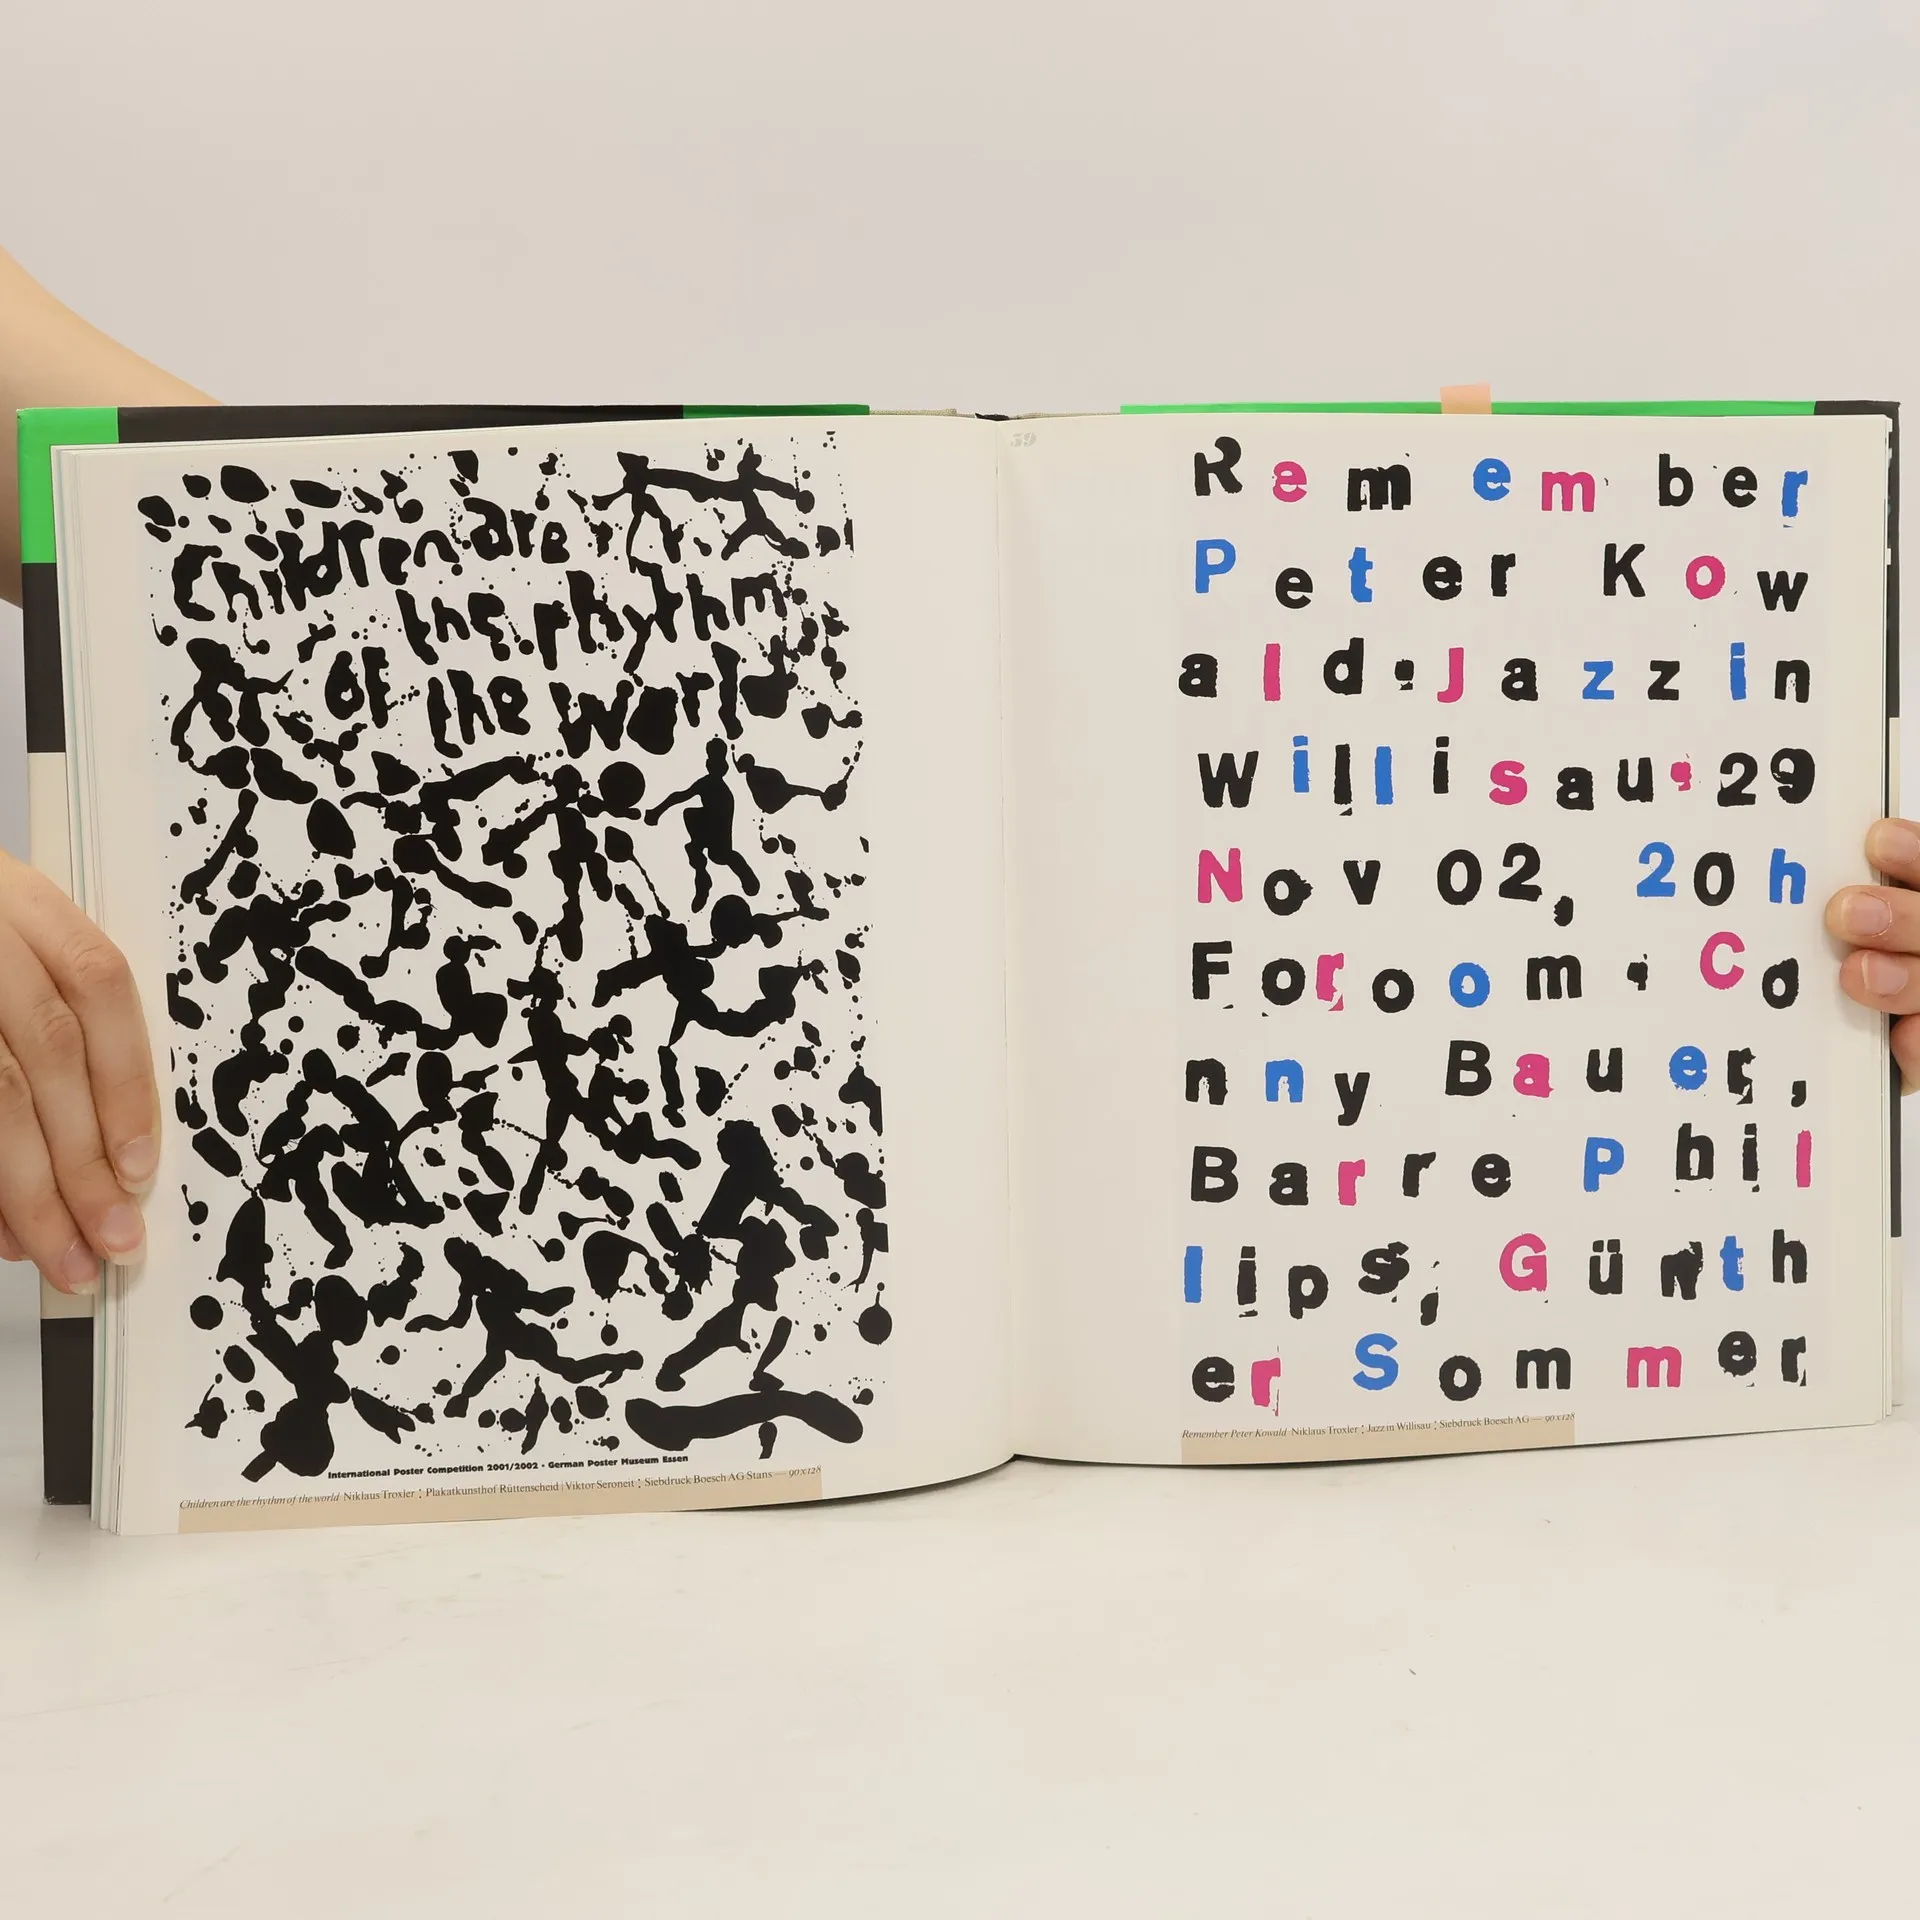 Children are
the rhythm
of the world
International Poster Competition 2001/2002 - German Poster Museum Essen
Children are the rhythm of the world Niklaus Troxler ¦ Plakatkunsthof Rüttenscheid | Viktor Seroneit ¦ Siebdruck Boesch AG Stans — 90x128
59
Remember
Peter Kow
ald · Jazz in
Willisau · 29
Nov 02, 20h
Foroom · Co
nny Bauer,
Barre Phil
lips, Günth
er Sommer
Remember Peter Kowald Niklaus Troxler ¦ Jazz in Willisau ¦ Siebdruck Boesch AG — 90x128